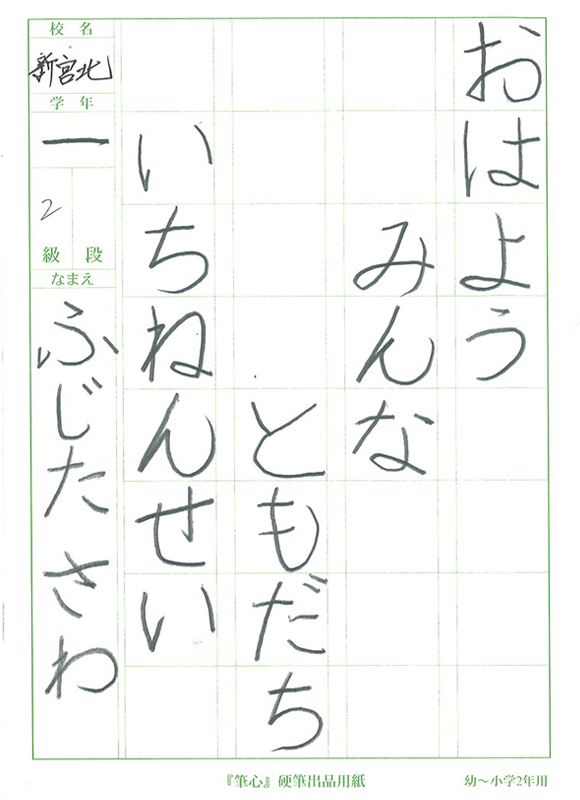 おはよう
みんな
ともだち
いちねんせい
校名
新宮北
学年
一
2
級 段
なまえ
ふじた さわ
『筆心』硬筆出品用紙
幼~小学2年用